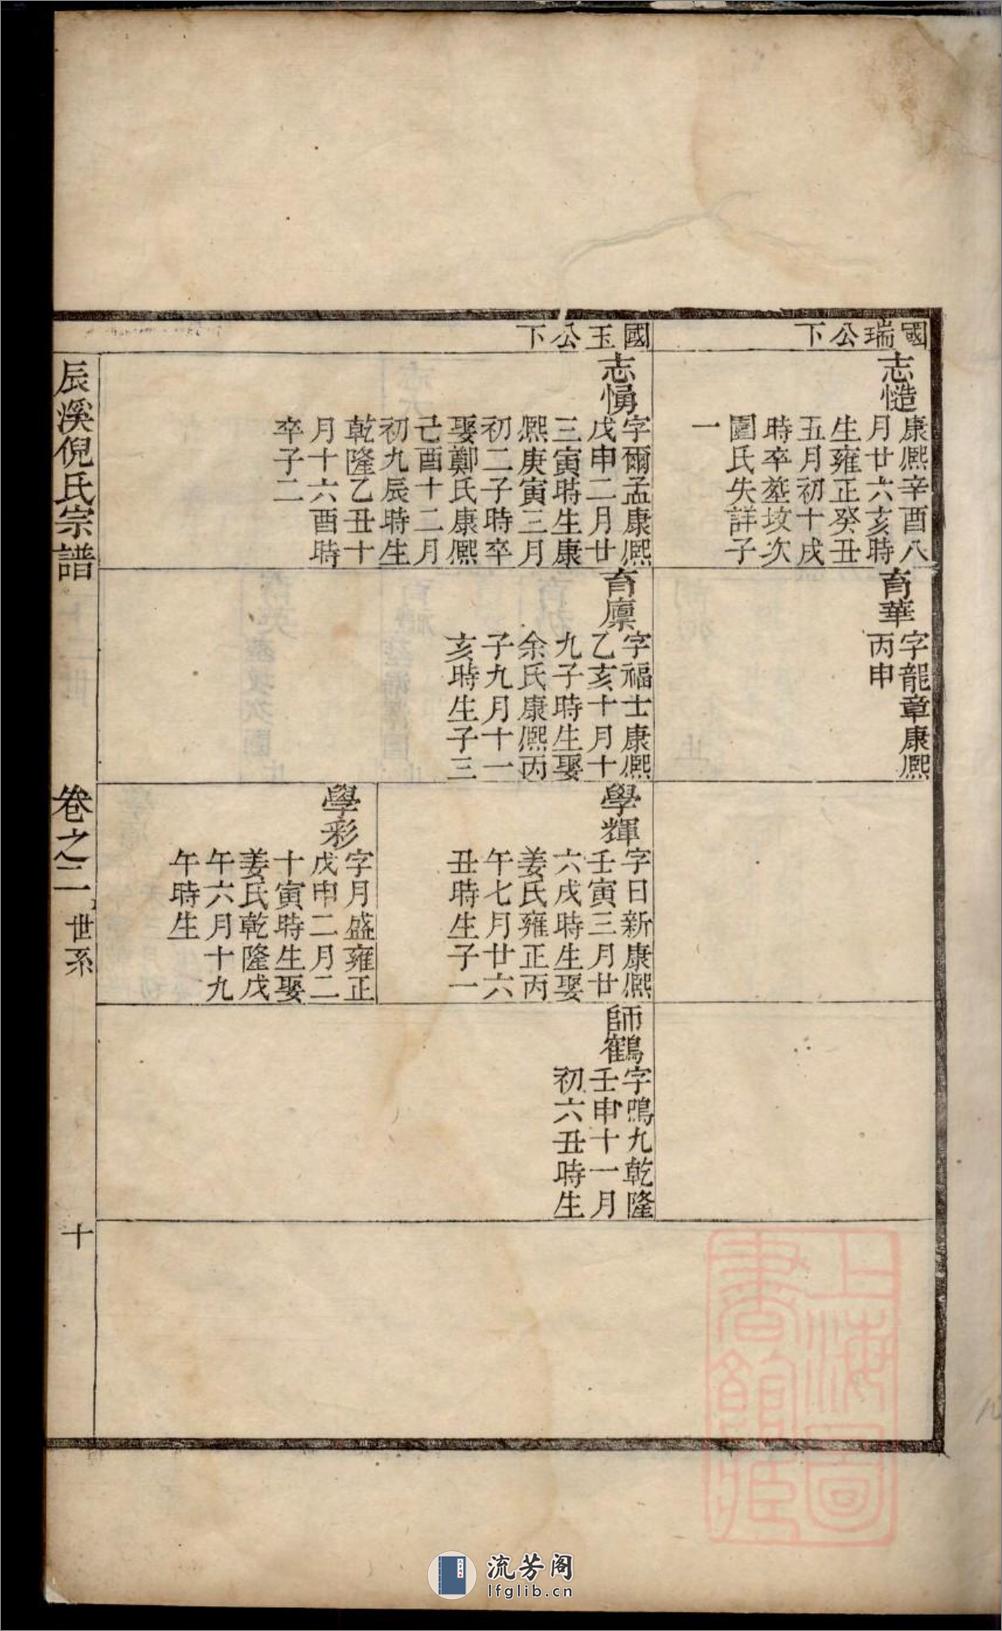 國瑞公下
志慥
康熙辛酉八
月廿六亥時
生雍正癸丑
五月初十戌
時卒塟坟次
圖氏失詳子
一
育華
字龍章康熙
丙申
國玉公下
志愑
字爾孟康熙
戊申二月廿
三寅時生康
熙庚寅三月
初二子時卒
娶鄭氏康熙
己酉十二月
初九辰時生
乾隆乙丑十
月十六酉時
卒子二
育廪
字福士康熙
乙亥十月十
九子時生娶
余氏康熙丙
子九月十一
亥時生子三
學輝
字日新康熙
壬寅三月廿
六戌時生娶
姜氏雍正丙
午七月廿六
丑時生子一
學彩
字月盛雍正
戊申二月二
十寅時生娶
姜氏乾隆戊
午六月十九
午時生
師鶴
字鳴九乾隆
壬申十一月
初六丑時生
辰溪倪氏宗譜
卷之二
世系
十
上海圖
書館藏
流芳阁
lfglib.cn